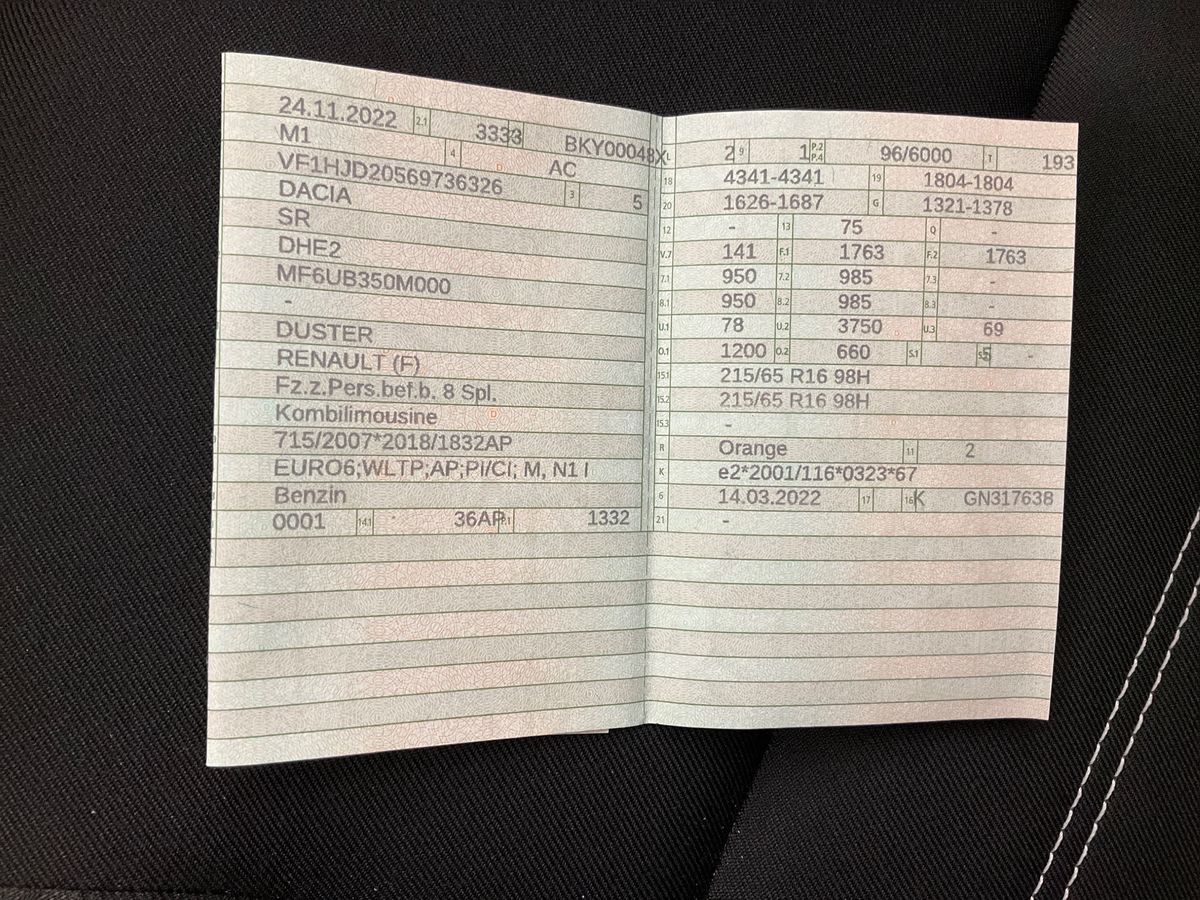 24.11.2022 2.1 3333 BKY00048X
M1 4 AC
VF1HJD20569736326 3 5
DACIA
SR
DHE2
MF6UB350M000
-
DUSTER
RENAULT (F)
Fz.z.Pers.bef.b. 8 Spl.
Kombilimousine
715/2007*2018/1832AP
EURO6;WLTP;AP;PI/CI; M, N1 I
Benzin
0001 14.1 36AP P.1 1332
L 2 9 1 P.2 P.4 96/6000 T 193
18 4341-4341 19 1804-1804
20 1626-1687 G 1321-1378
12 - 13 75 Q -
V.7 141 F.1 1763 F.2 1763
7.1 950 7.2 985 7.3 -
8.1 950 8.2 985 8.3 -
U.1 78 U.2 3750 U.3 69
O.1 1200 O.2 660 S.1 5 S.2 -
15.1 215/65 R16 98H
15.2 215/65 R16 98H
15.3 -
R Orange 11 2
K e2*2001/116*0323*67
6 14.03.2022 17 K 16 GN317638
21 -